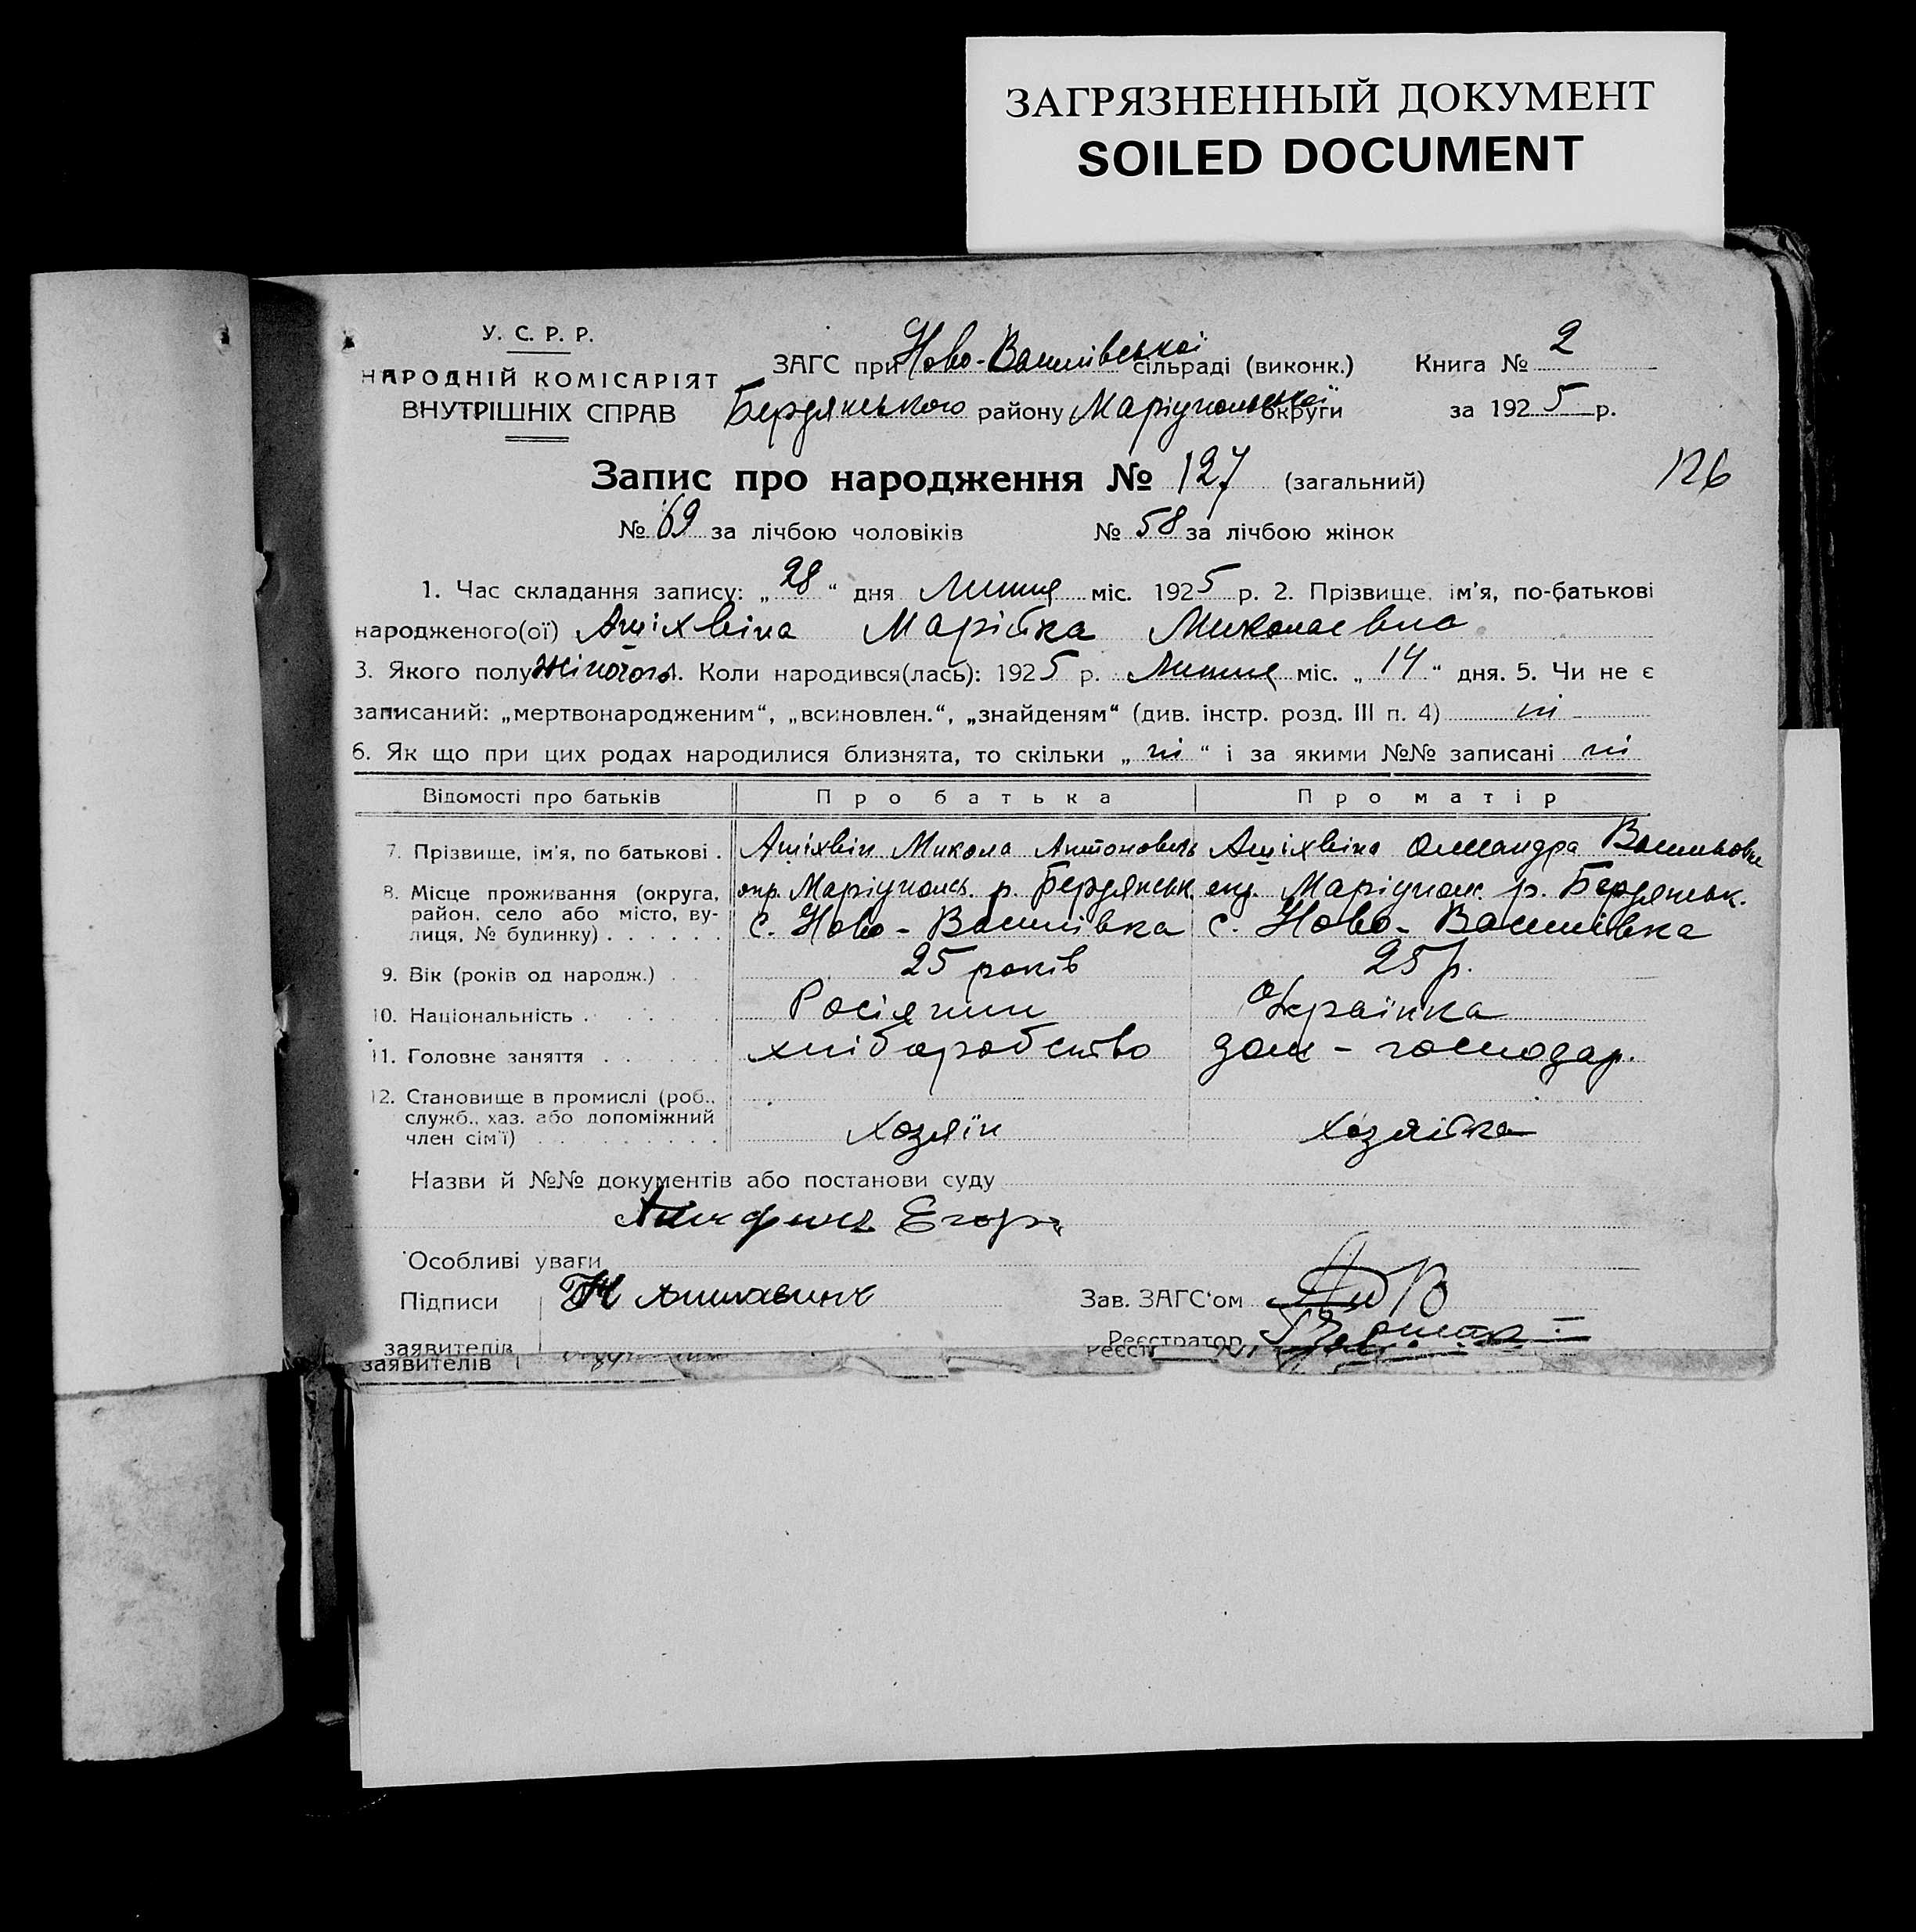 ЗАГРЯЗНЕННЫЙ ДОКУМЕНТ
SOILED DOCUMENT
У. С. Р. Р.
НАРОДНІЙ КОМІСАРІЯТ
ВНУТРІШНІХ СПРАВ
ЗАГС при Ново-Василівської сільраді (виконк.)
Бердянського району Маріупольської округи
Книга № 2
за 1925 р.
Запис про народження № 127 (загальний)
126
№ 69 за лічбою чоловіків № 58 за лічбою жінок
1. Час складання запису: „28“ дня Липня міс. 1925 р. 2. Прізвище, ім'я, по-батькові
народженого(ої) Ашіхвіна Марійка Миколаєвна
3. Якого полу жіночого 4. Коли народився(лась): 1925 р. Липня міс. „14“ дня. 5. Чи не є
записаний: „мертвонародженим“, „всиновлен.“, „знайденям“ (див. інстр. розд. III п. 4) ні
6. Як що при цих родах народилися близнята, то скільки „ні“ і за якими №№ записані ні
Відомості про батьків Про батька Про матір
7. Прізвище, ім'я, по батькові . Ашіхвін Микола Антонович Ашіхвіна Олександра Васильовна
8. Місце проживання (округа, окр. Маріуполь. р. Бердянськ. окр. Маріупол. р. Бердянськ.
район, село або місто, ву- с. Ново-Василівка с. Ново-Василівка
лиця, № будинку) . . . . . .
9. Вік (років од народж.) . 25 років 25 р.
10. Національність . . . . . Росіянин Українка
11. Головне заняття . . . . . . хліборобство дом-господар.
12. Становище в промислі (роб.,
служб., хаз. або допоміжний Хозяїн Хозяйка
член сім'ї) . . . . . . . . .
Назви й №№ документів або постанови суду
Егор
Особливі уваги
Підписи
Зав. ЗАГС'ом
заявителів
Реєстратор
заявителів